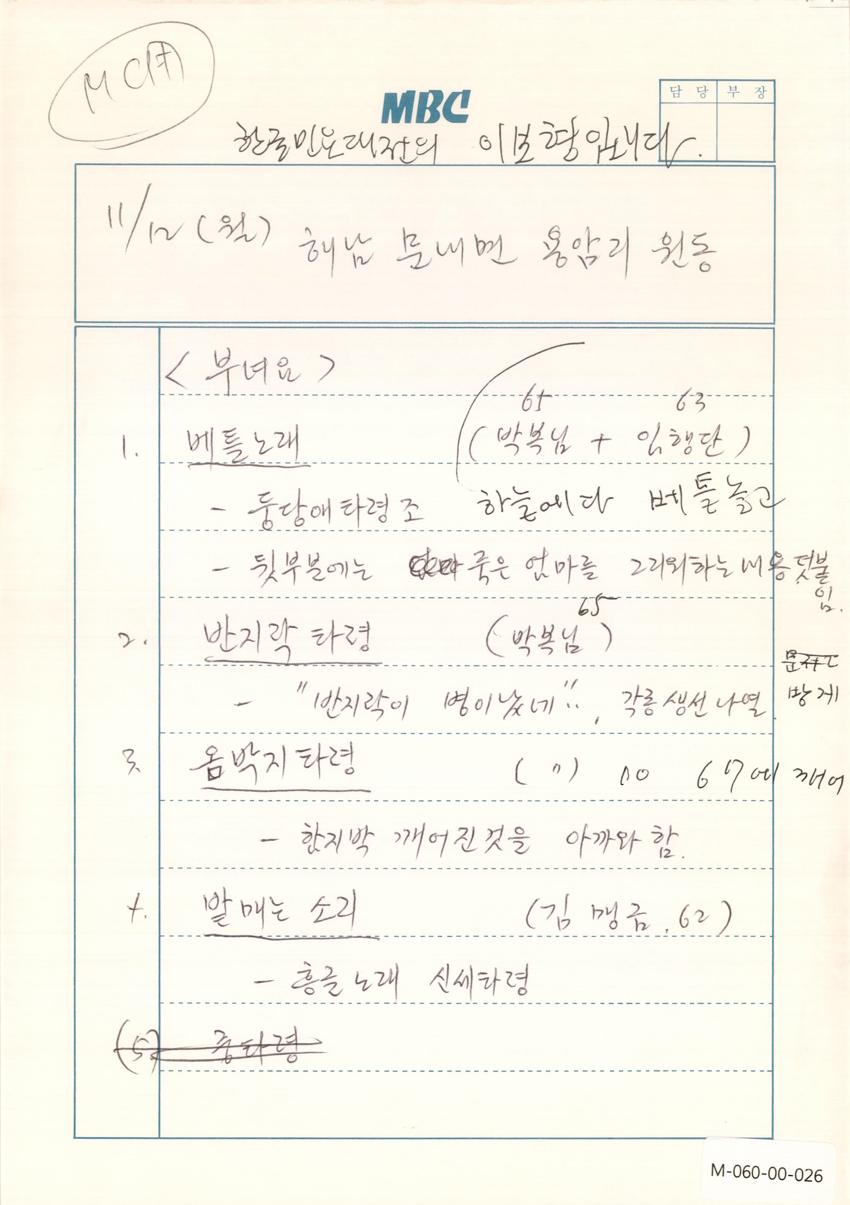 MBC
담당 부장
한글민요대전의 이보형입니다.
11/12 (월) 해남 문내면 용암리 원동
< 부녀요 >
65 63
1. 베틀노래 (박복님 + 임행단)
- 둥당애타령조 하늘에다 베틀놓고
- 뒷부분에는 죽은 엄마를 그리워하는 내용 덧붙임.
65
2. 반지락타령 (박복님)
- "반지락이 병이났네"..., 각종 생선 나열.
방게
3. 옴박지타령 (〃)
깨어
- 함지박 깨어진것을 아까와함.
4. 밭매는 소리 (김맹금, 62)
- 흥글노래 신세타령
(5) 중타령
M-060-00-026